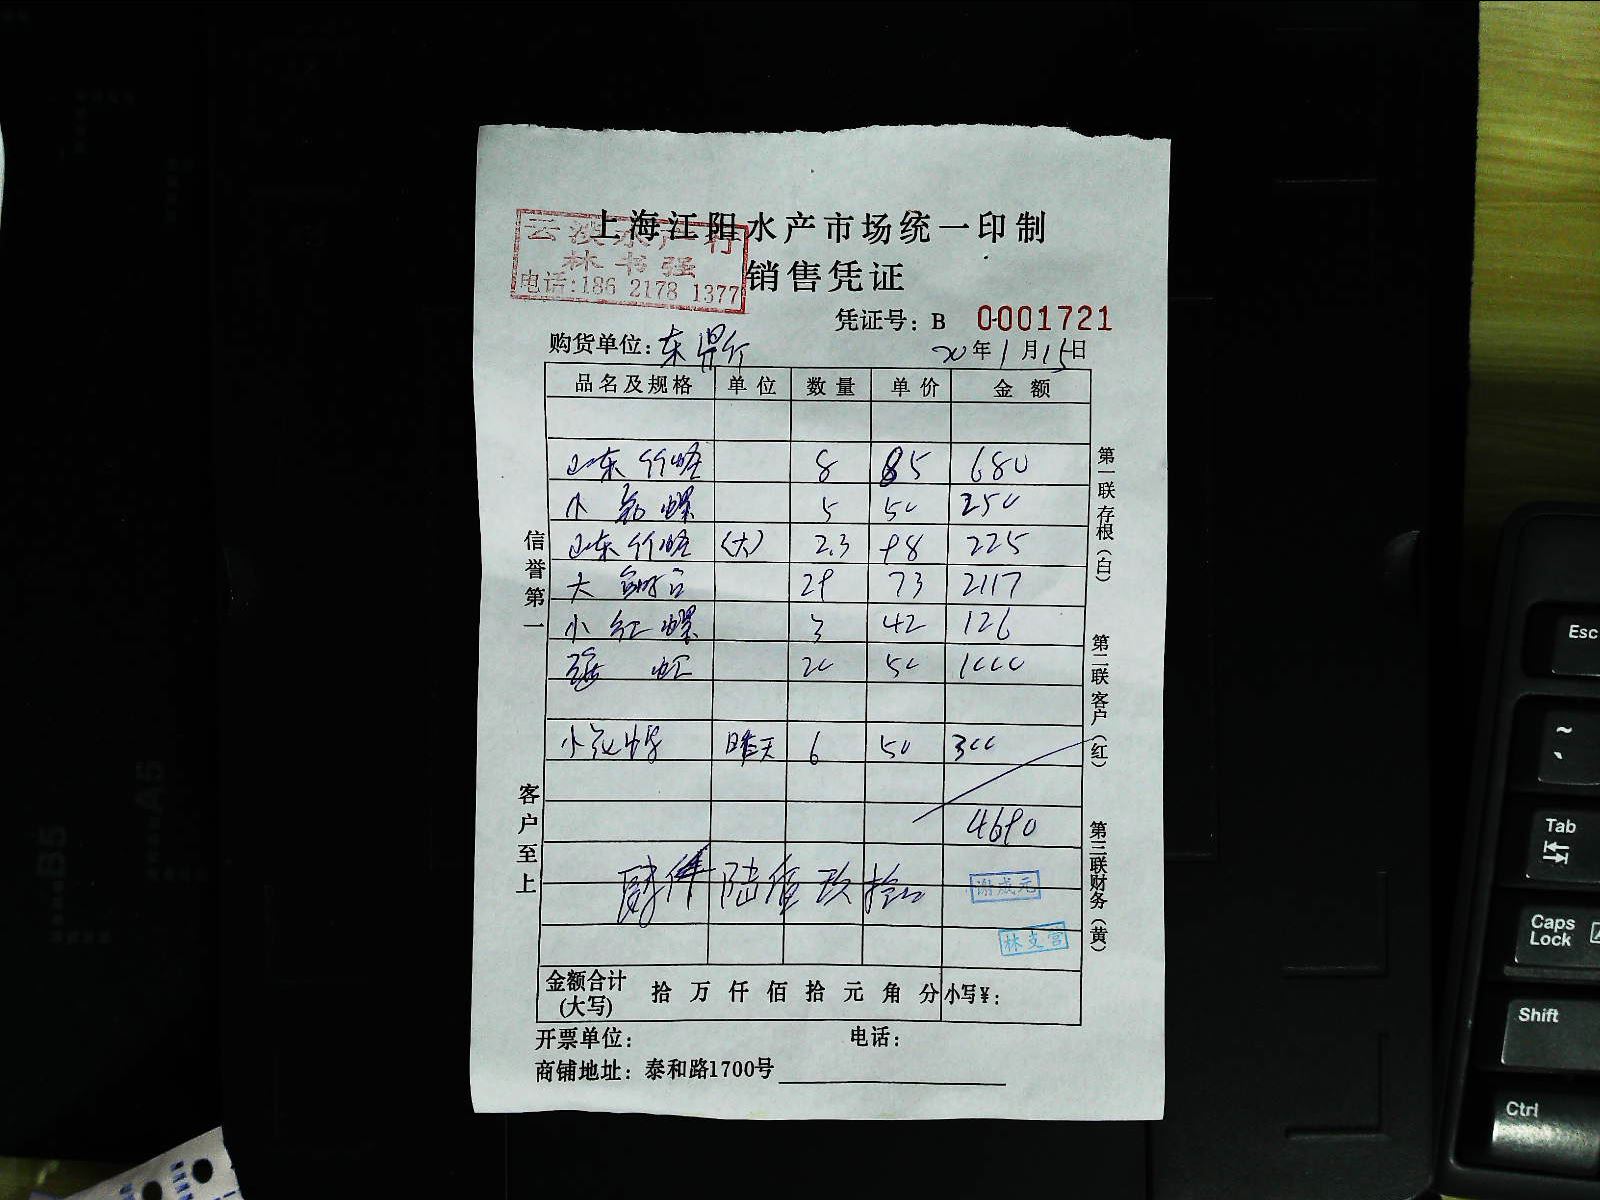 上海江阳水产市场统一印制
云淡水产行
林书强
电话:186 2178 1377
销售凭证
凭证号: B 0001721
购货单位: 东
20年1月15日
品名及规格 单位 数量 单价 金额
山东竹蛏 8 85 680
小 螺 5 50 250
山东竹蛏 (大) 2.3 98 225
大 29 73 2117
小红螺 3 42 126
虾 20 50 1000
小 昨天 6 50 300
4690
肆仟陆佰玖拾元
谢成元
林支营
金额合计(大写) 拾 万 仟 佰 拾 元 角 分 小写¥:
开票单位: 电话:
商铺地址: 泰和路1700号
信誉第一
客户至上
第一联存根(白)
第二联客户(红)
第三联财务(黄)
B5
A5
Esc
~
`
Tab
Caps Lock
A
Shift
Ctrl